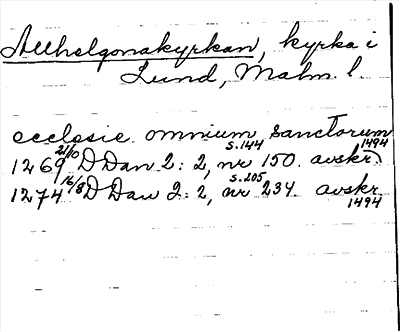 Allhelgonakyrkan, kyrka i
Lund, Malm. l.
ecclesie omnium sanctorum
1269 21/10 D Dan 2: 2, nr 150. s. 144 avskr. 1494
1274 16/8 D Dan 2: 2, nr 234. s. 205 avskr. 1494